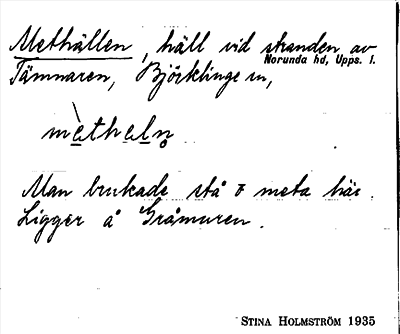 Methällen, häll vid stranden av
Norunda hd, Upps. l.
Tämnaren, Björklinge sn,
mèthęln̥
Man brukade stå o meta här.
Ligger å Gråmuren.
STINA HOLMSTRÖM 1935